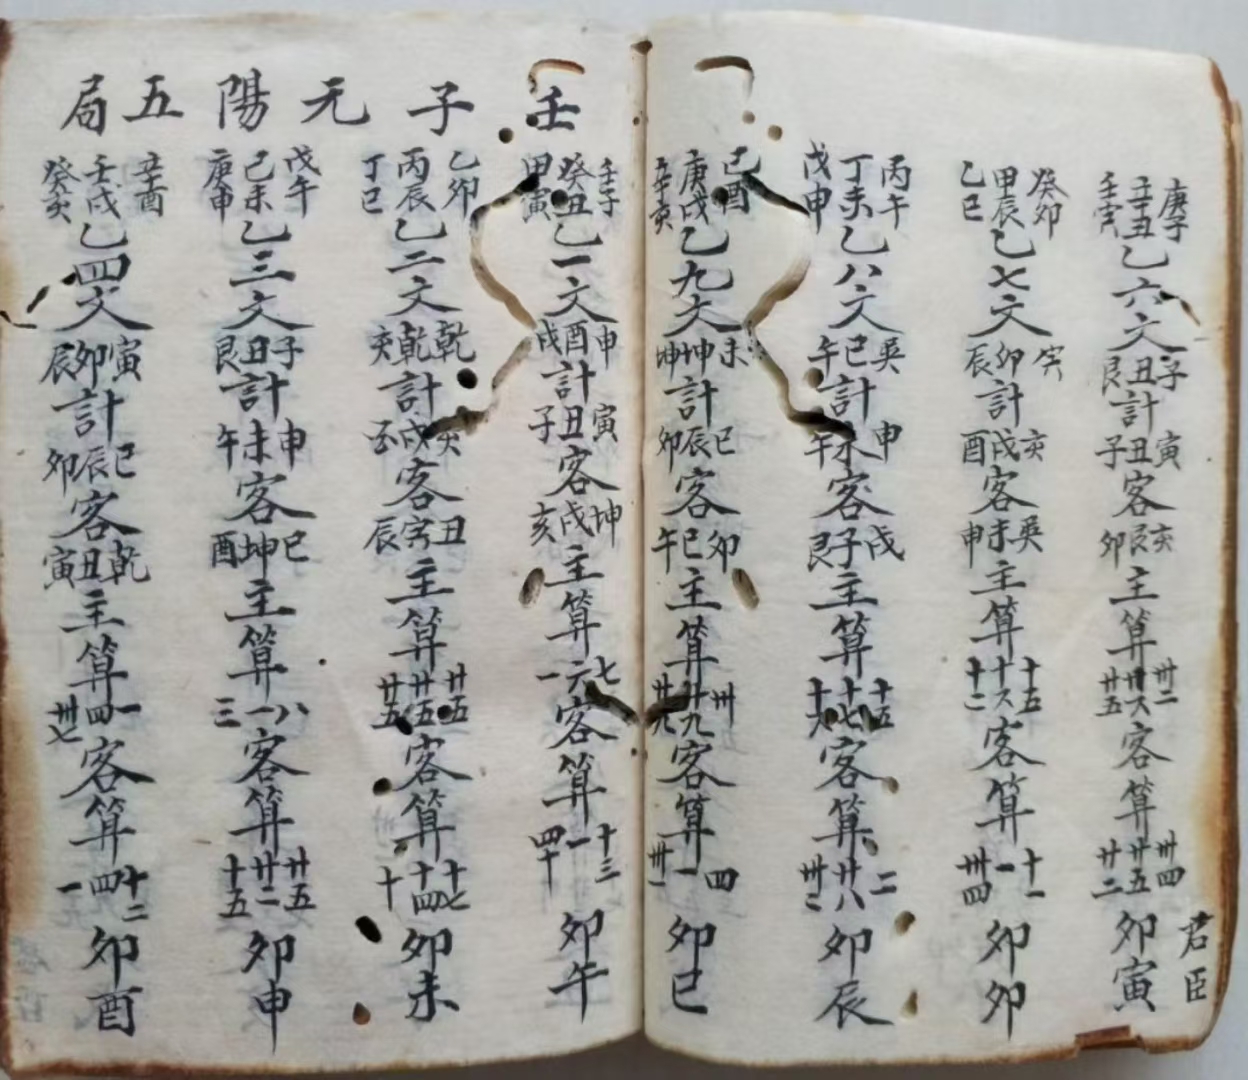 君臣
庚子 辛丑 壬寅 乙六文 子 丑 艮 計 寅 丑 子 客 亥 艮 卯 主算 卅二 廿六 廿五 客算 卅四 廿五 廿二 卯寅
癸卯 甲辰 乙巳 乙七文 寅 卯 辰 計 亥 戌 酉 客 巽 未 申 主算 十五 十六 十二 客算 十一 一 卅四 卯卯
丙午 丁未 戊申 乙八文 巽 巳 午 計 申 未 午 客 戌 子 艮 主算 十五 十七 十六 客算 二 廿八 卅二 卯辰
己酉 庚戌 辛亥 乙九文 未 坤 坤 計 巳 辰 卯 客 卯 巳 午 主算 卅 廿九 廿九 客算 四 一 卅一 卯巳
壬子元陽五局
壬子 癸丑 甲寅 乙一文 申 酉 戌 計 寅 丑 子 客 坤 戌 亥 主算 七 六 一 客算 十三 一 四十 卯午
乙卯 丙辰 丁巳 乙二文 乾 乾 亥 計 亥 戌 客 丑 寅 辰 主算 廿五 廿五 廿五 客算 十七 十四 十 卯未
戊午 己未 庚申 乙三文 子 丑 艮 計 申 未 午 客 巳 坤 酉 主算 八 一 三 客算 廿五 廿二 十五 卯申
辛酉 壬戌 癸亥 乙四文 寅 卯 辰 計 巳 辰 卯 客 乾 丑 寅 主算 一 四 卅七 客算 十二 四 一 卯酉